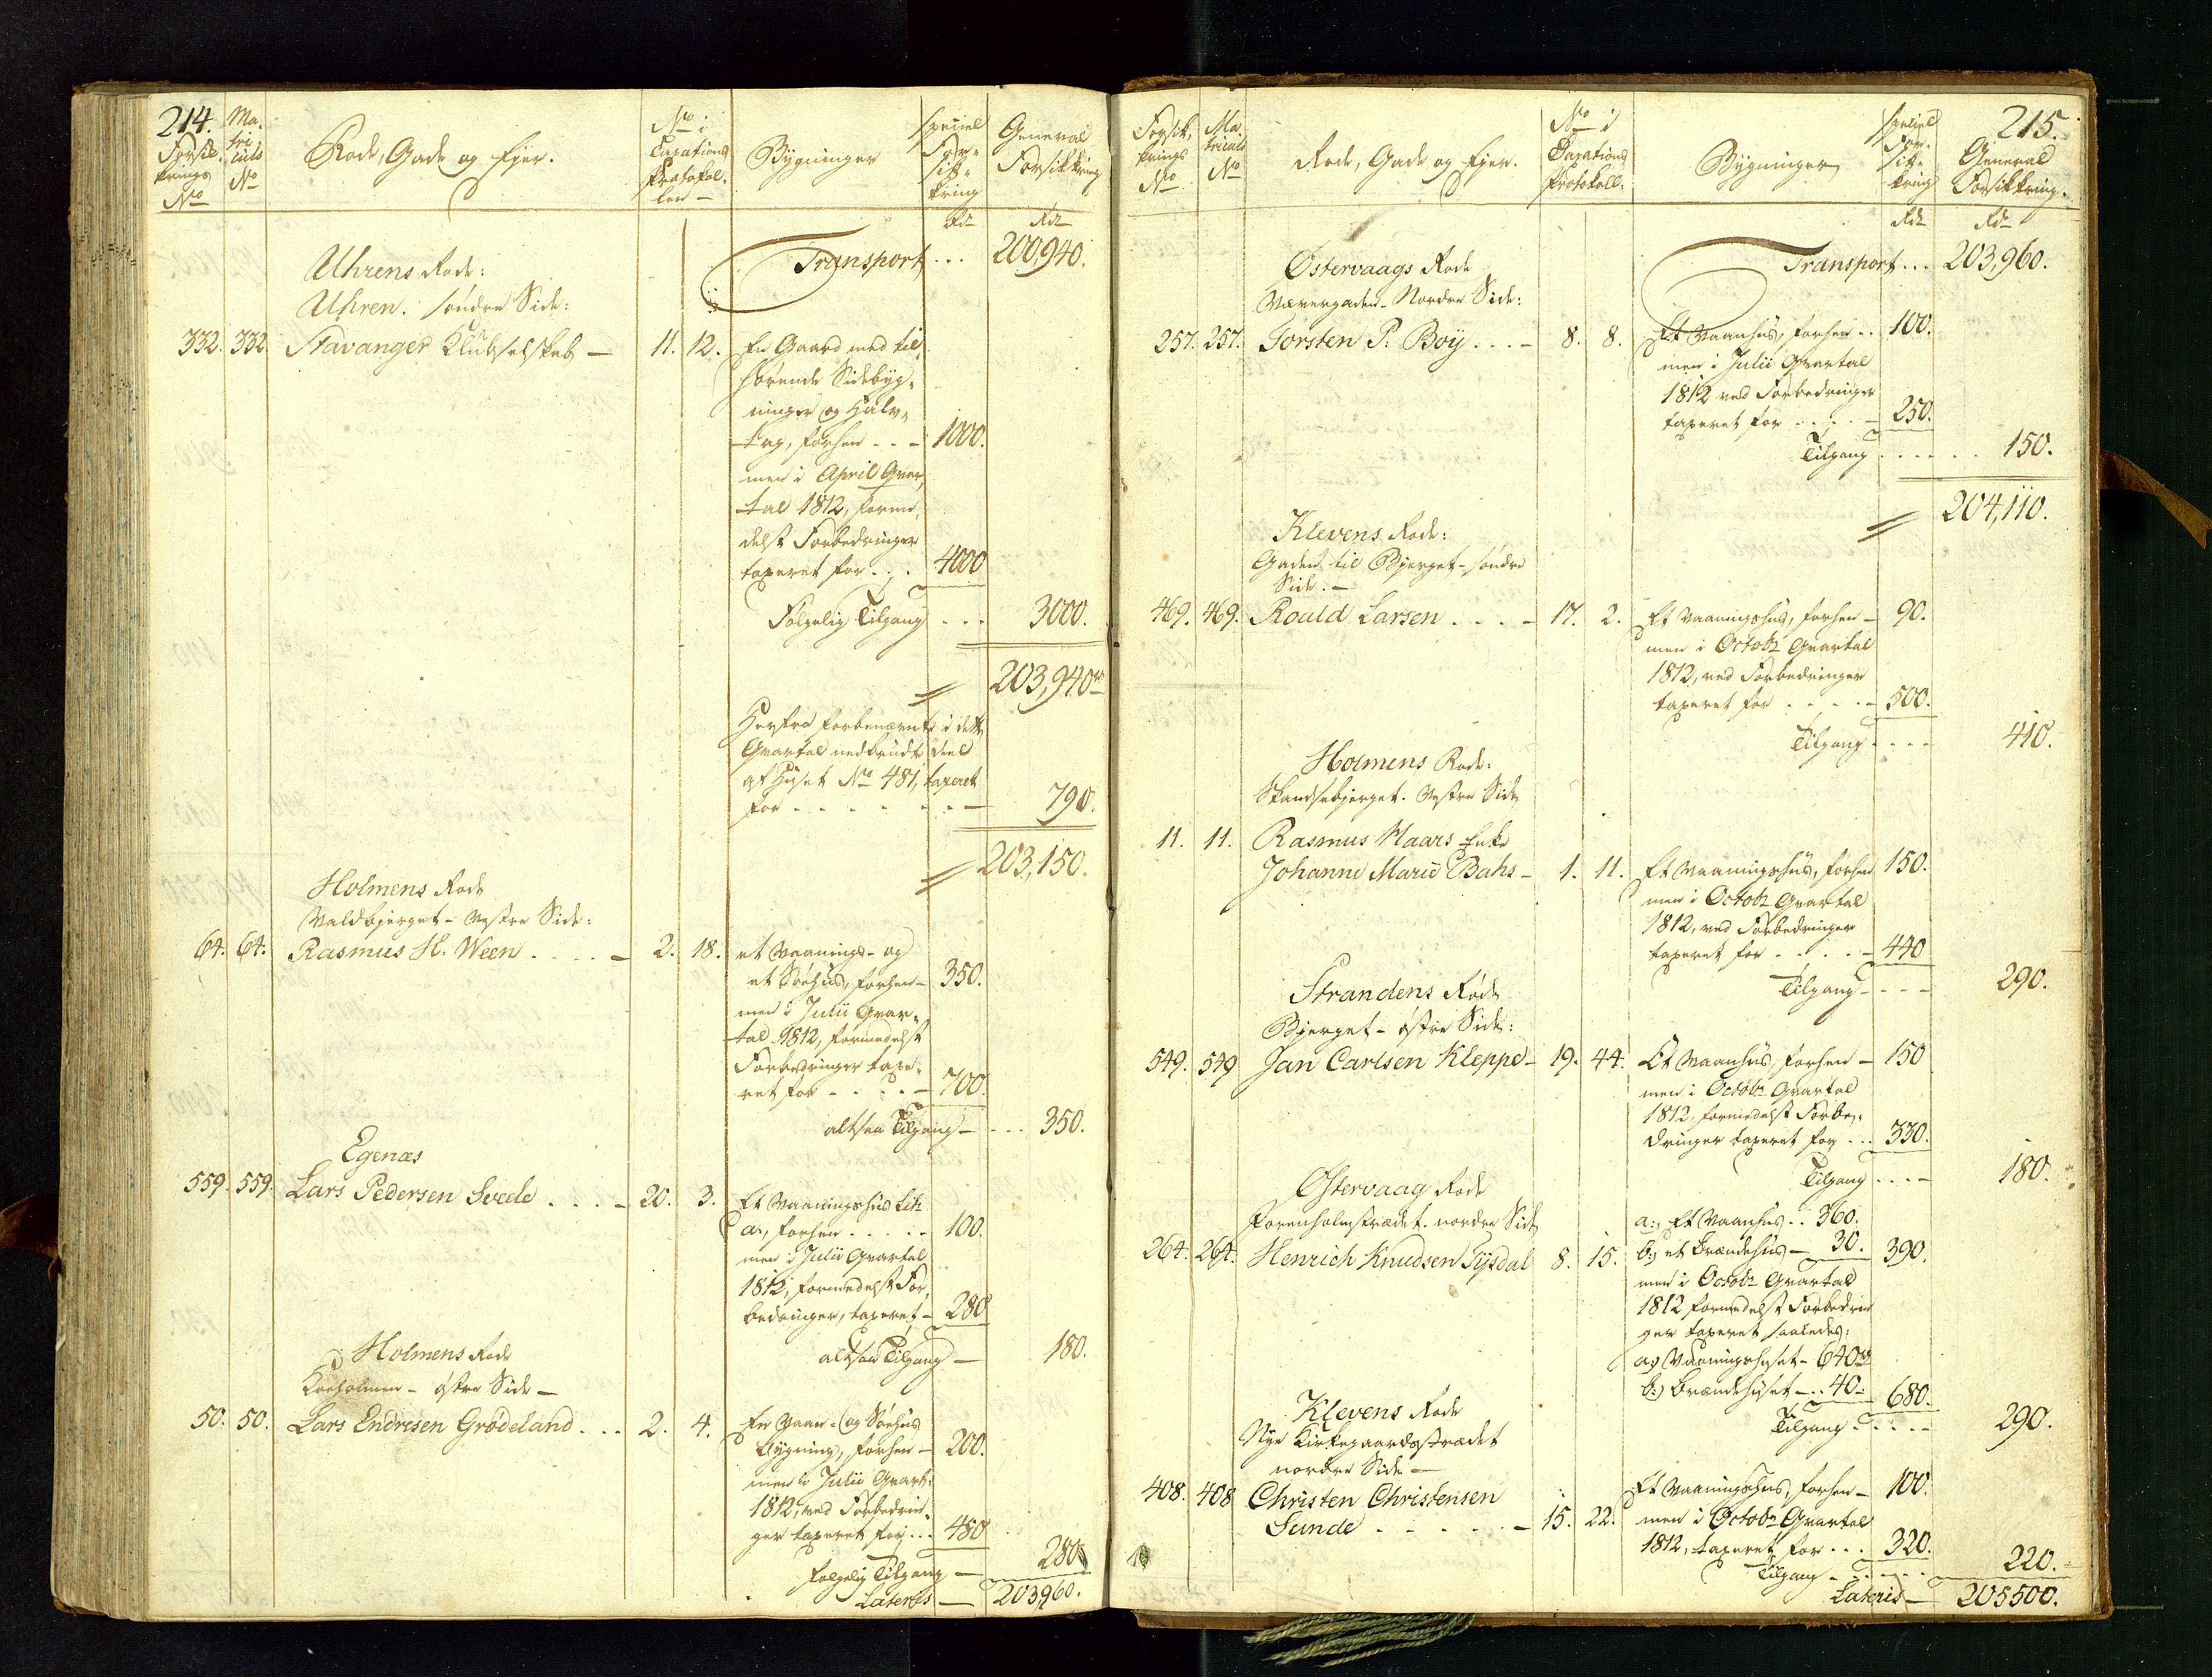 214.
Forsik-
krings
No
Ma-
tri
culs
No
Rode, Gade og Ejer.
No i
Taxations
Protokol-
len -
Bygninger
Speciel
For-
sik-
kring
Rd
General
Forsikkring
Rd
Transport ... 200,940.
Uhrens Rode:
Uhren. søndre Side:
332. 332 Stavanger Klubselskab - 11. 12. En Gaard med til-
hørende Sidebyg-
ninger og Halv-
tag, forhen - - - 1000.
men i April Qvar-
tal 1812, forme-
delst Forbedringer
taxeret for . . . 4000
Følgelig Tilgang . . . 3000.
203,940
Herfra forbenævnte i dette
Qvartal nedbrudt Deel
af Huset No 481, taxeret
for - - - - - - - 790.
203,150.
Holmens Rode
Waldbjerget - Vestre Side:
64. 64. Rasmus H. Ween . . . . - 2. 18. et Vaanings- og
et Søehus, forhen - 350.
men i Julii Qvar-
tal 1812, formedelst
Forbedringer taxe-
ret for - . . . - 700.
altsaa Tilgang - . . . 350.
Egenæs
559. 559. Lars Pedersen Svede . . . - 20. 3. Et Vaaningshus Litr.
a., forhen . . . . . 100.
men i Julii Qvartal
1812, formedelst For-
bedringer, taxeret - 280
altsaa Tilgang - 180.
Holmens Rode
Kaeholmen - østre Side -
50. 50. Lars Endresen Grødeland . . . 2. 4. En Vaan- og Søehus
bygning, forhen - 200.
men i Julii Qvart:
1812, ved Forbedrin-
ger taxeret for . . . 480
følgelig Tilgang - 280
Lateris - 203,960.
215.
Forsik-
krings
No
Ma-
triculs
No
Rode, Gade og Ejer.
No i
Taxations
Protokoll.
Bygninger
Speciel
For-
sik-
kring
Rd
General
Forsikkring.
Rd
Transport . . . 203,960.
Østervaags Rode
Værergaden - Nordre Side:
257. 257. Torsten P. Boÿ . . . - 8. 8. Et Vaanhus, forhen . . 100.
men i Julii Qvartal
1812 ved Forbedringer
taxeret for . . . . - 250.
Tilgang . . . . . . 150.
204,110.
Klevens Rode:
Gaden til Bjerget - søndre
Side. -
469. 469. Roald Larsen . . . - 17. 2. Et Vaaningshus, forhen - 90.
men i Octobr Qvartal
1812, ved Forbedringer
taxeret for . . . . - 500.
Tilgang . . . - 410.
Holmens Rode:
Skandsebjerget. Vestre Side
11. 11. Rasmus Maars Enke
Johanne Marie Bahs - 1. 11. Et Vaaningshus, forhen 150.
men i Octobr Qvartal
1812, ved Forbedringer
taxeret for - . . . - 440
Tilgang - - - - 290.
Strandens Rode
Bjerget - østre Side:
549. 549 Jan Carlsen Kleppe - 19. 44. Et Vaanhus, forhen - 150
men i Octobr Qvartal
1812, formedelst Forbe-
dringer taxeret for . . . 330.
Tilgang . . . - 180.
Østervaag Rode
Forenholmstrædet. nordre Side
264. 264. Henrich Knudsen Tysdal 8. 15. a:, Et Vaanhus . . 360.
b:, et Brændehus - 30. 390.
men i Octobr Qvartal
1812 formedelst Forbedrin
ger taxeret saaledes:
a:, Vaaningshuset - 640
b:, Brændehuset - . . 40. 680.
Tilgang . . . . - 290.
Klevens Rode
Nye Kirkegaardsstrædet
nordre Side -
408. 408 Christen Christensen
Sunde . - - . . . - 15. 22. Et Vaaningshus, forhen - 100.
men i Octobr Qvartal
1812, taxeret for . . . 320.
Tilgang - . . . . . 220.
Lateris - 205500.